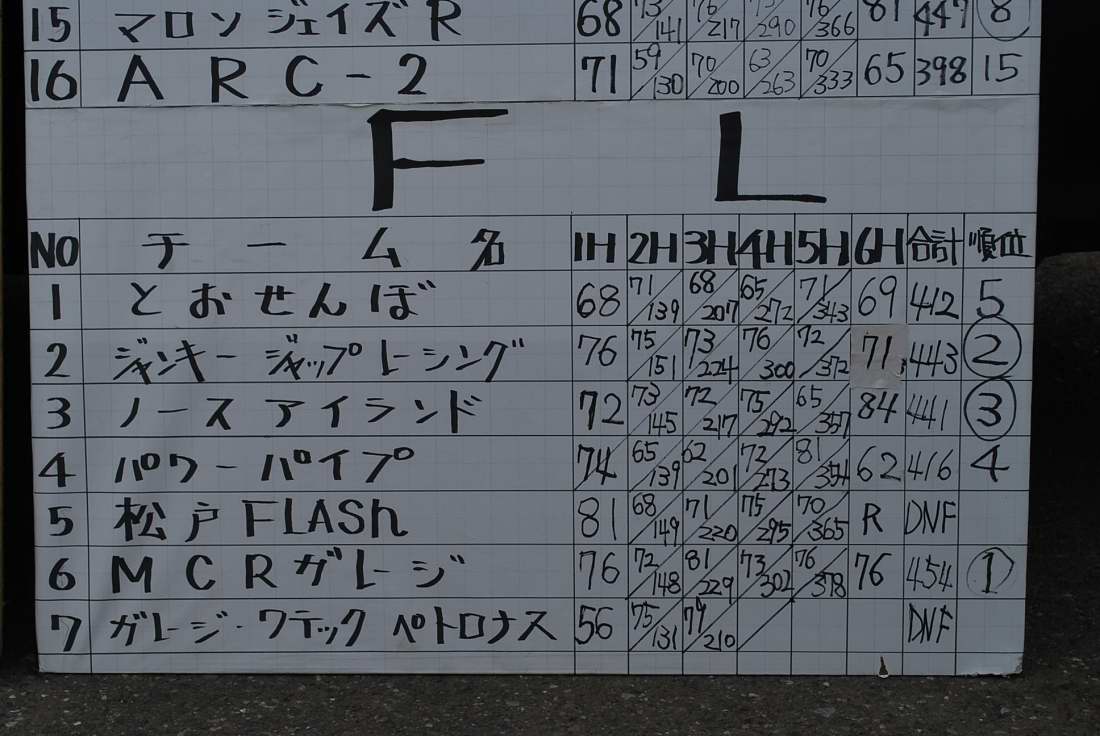 15 マロン ジェイズR 68 73/141 76/217 73/290 76/366 81 447 8
16 ARC-2 71 59/130 70/200 63/263 70/333 65 398 15
F L
NO チーム名 1H 2H 3H 4H 5H 6H 合計 順位
1 とおせんぼ 68 71/139 68/207 65/272 71/343 69 412 5
2 ジャンキー ジャップレーシング 76 75/151 73/224 76/300 72/372 71 443 2
3 ノースアイランド 72 73/145 72/217 75/292 65/357 84 441 3
4 パワーパイプ 74 65/139 62/201 72/273 81/354 62 416 4
5 松戸FLASh 81 68/149 71/220 75/295 70/365 R DNF
6 MCRガレージ 76 72/148 81/229 73/302 76/378 76 454 1
7 ガレージ・ワテック ペトロナス 56 75/131 79/210 DNF